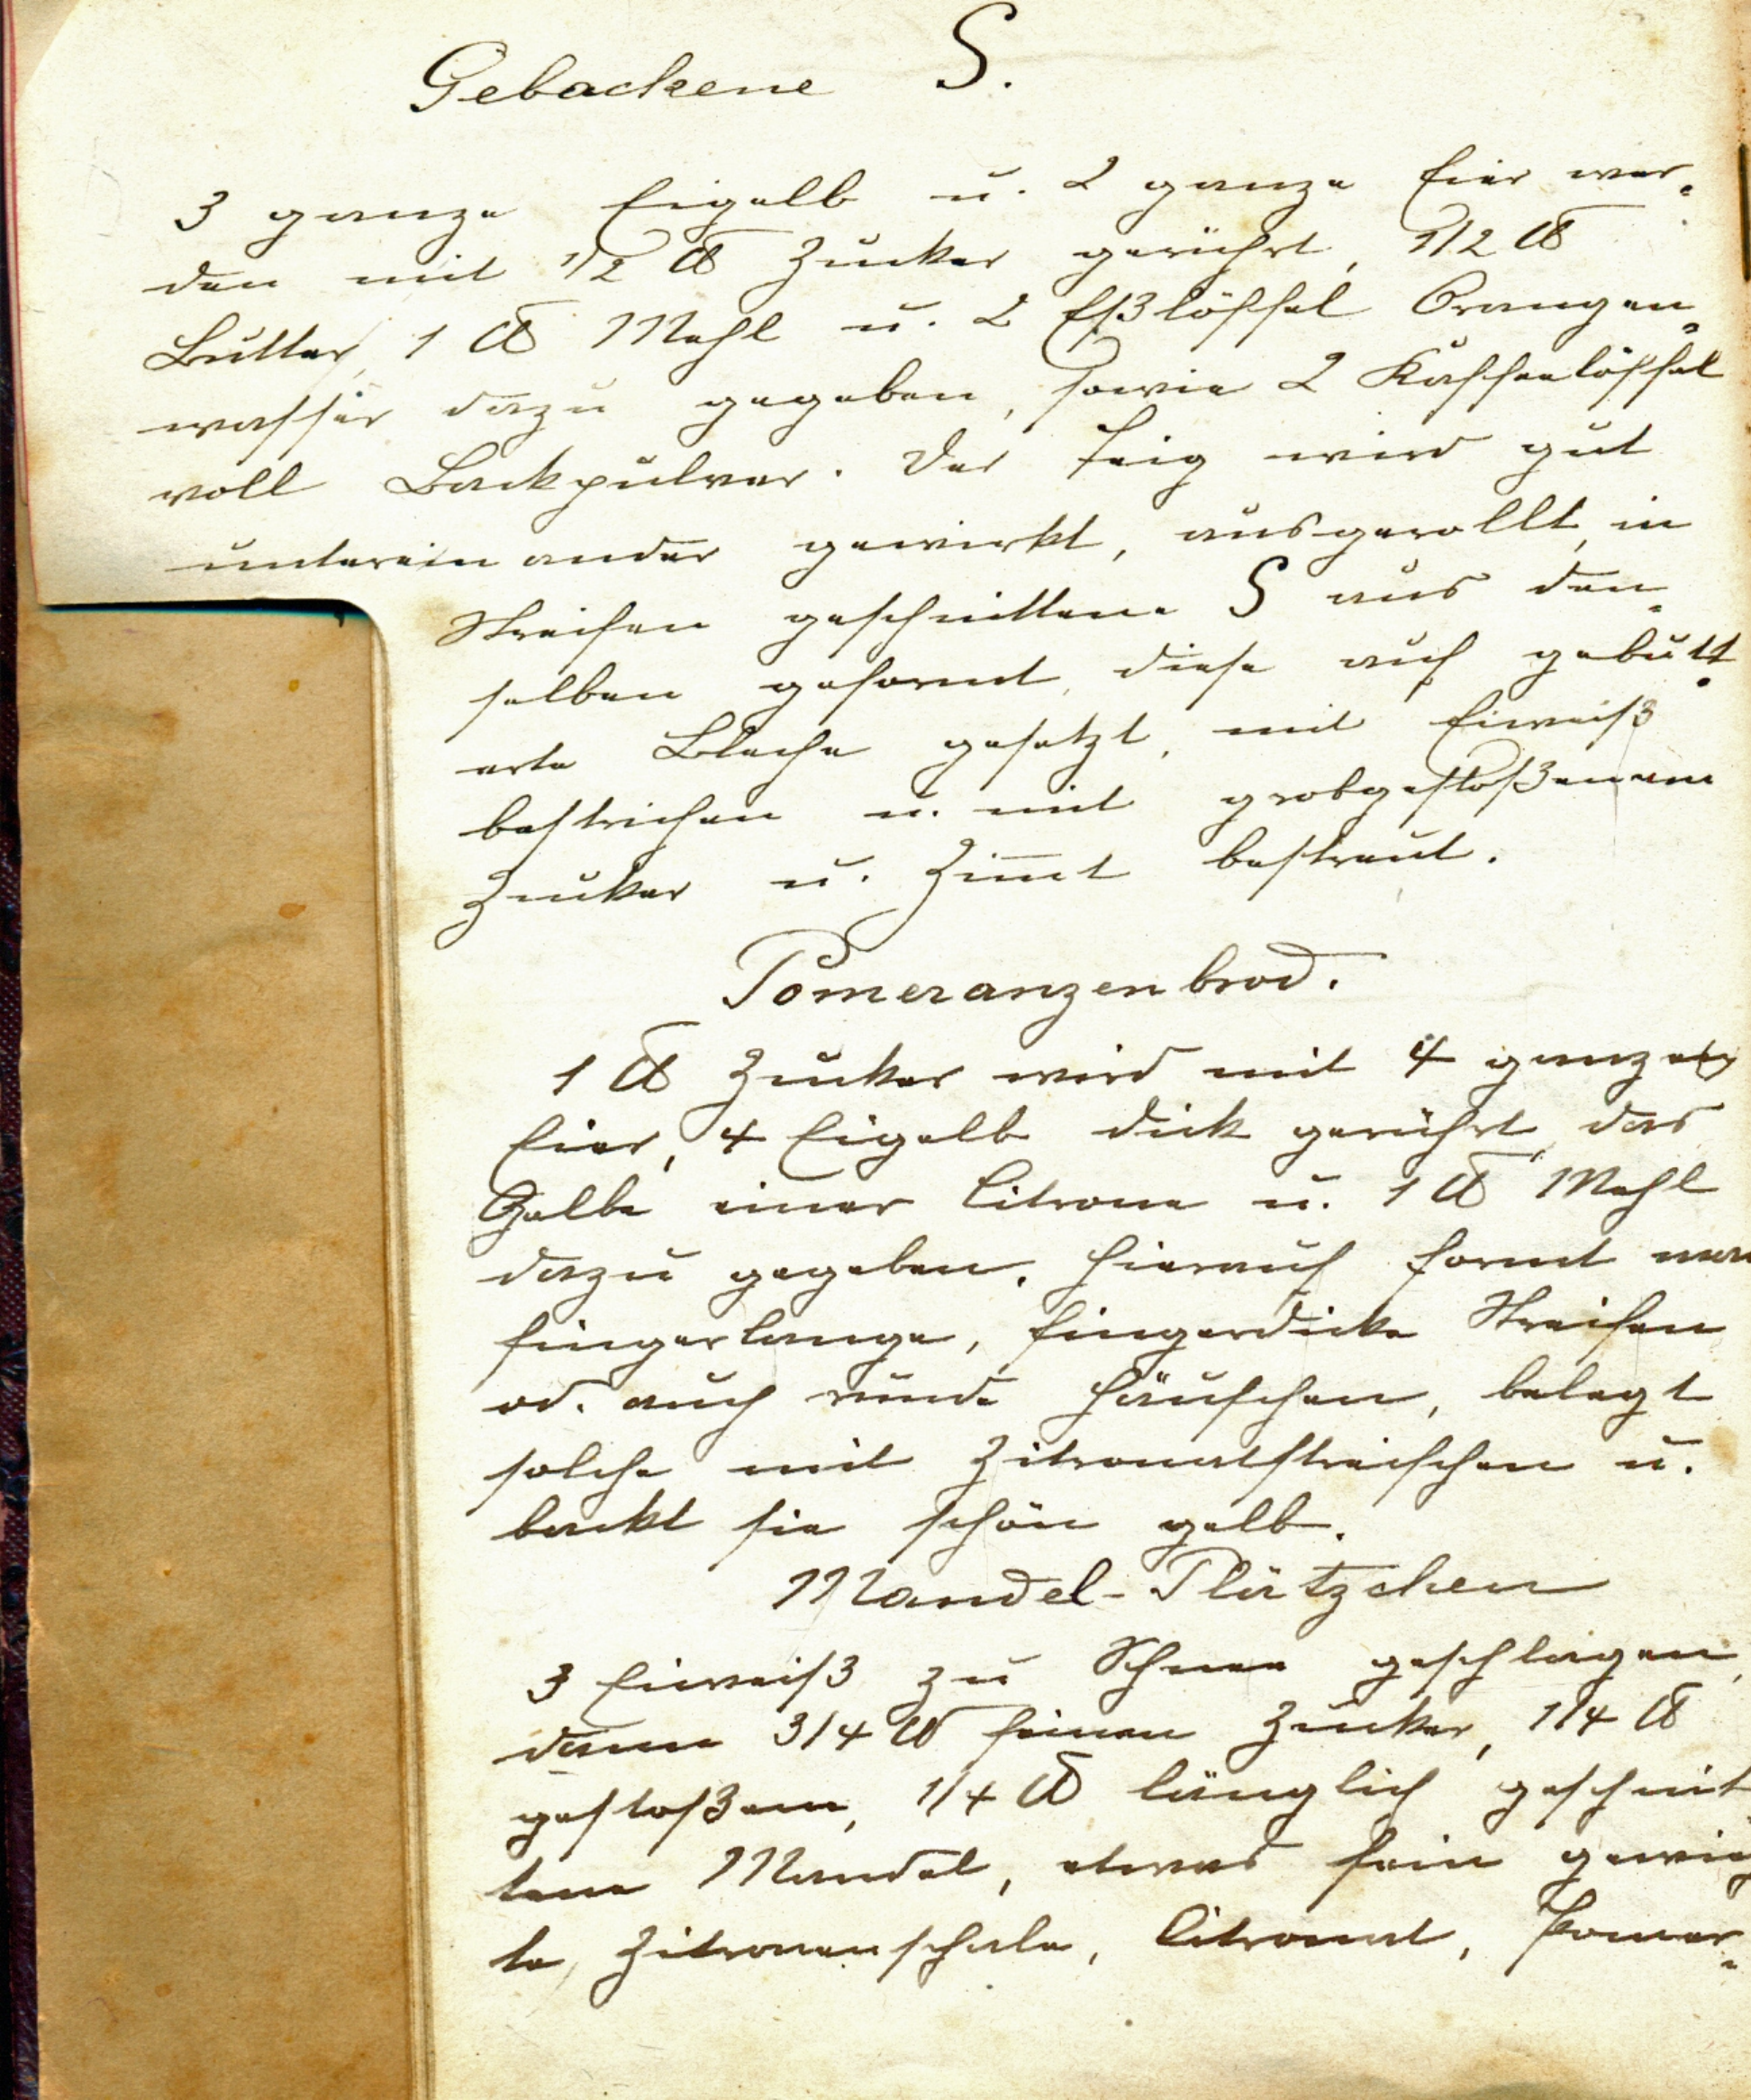 Gebackene S.
3 ganze Eigelb u. 2 ganze Eier wer-
den mit 1/2 ℔ Zucker gerührt, 1/2 ℔
Butter, 1 ℔ Mehl u. 2 Eßlöffel Orangen-
wasser dazu gegeben, sowie 2 Kaffeelöffel
voll Backpulver. Der Teig wird gut
untereinander gewirkt, ausgerollt, in
Streifen geschnittene S aus den-
selben geformt, diese auf gebutt-
erte Bleche gesetzt, mit Eiweiß
bestrichen u. mit grobgestoßenem
Zucker u. Zimt bestreut.
Pomeranzenbrod.
1 ℔ Zucker wird mit 4 ganzen
Eier, 4 Eigelb dick gerührt, das
Gelbe einer Citrone u. 1 ℔ Mehl
dazu gegeben, hierauf formt man
fingerlange, fingerdicke Streifen
od. auch runde Häufchen, belegt
solche mit Zitronatstreifchen u.
backt sie schön gelb.
Mandel-Plätzchen
3 Eiweiß zu Schnee geschlagen,
dann 3/4 ℔ feinen Zucker, 1/4 ℔
gestoßene, 1/4 ℔ länglich geschnit
tene Mandel, etwas fein gewieg
te, Zitronenschale, Citronat, Pomer-